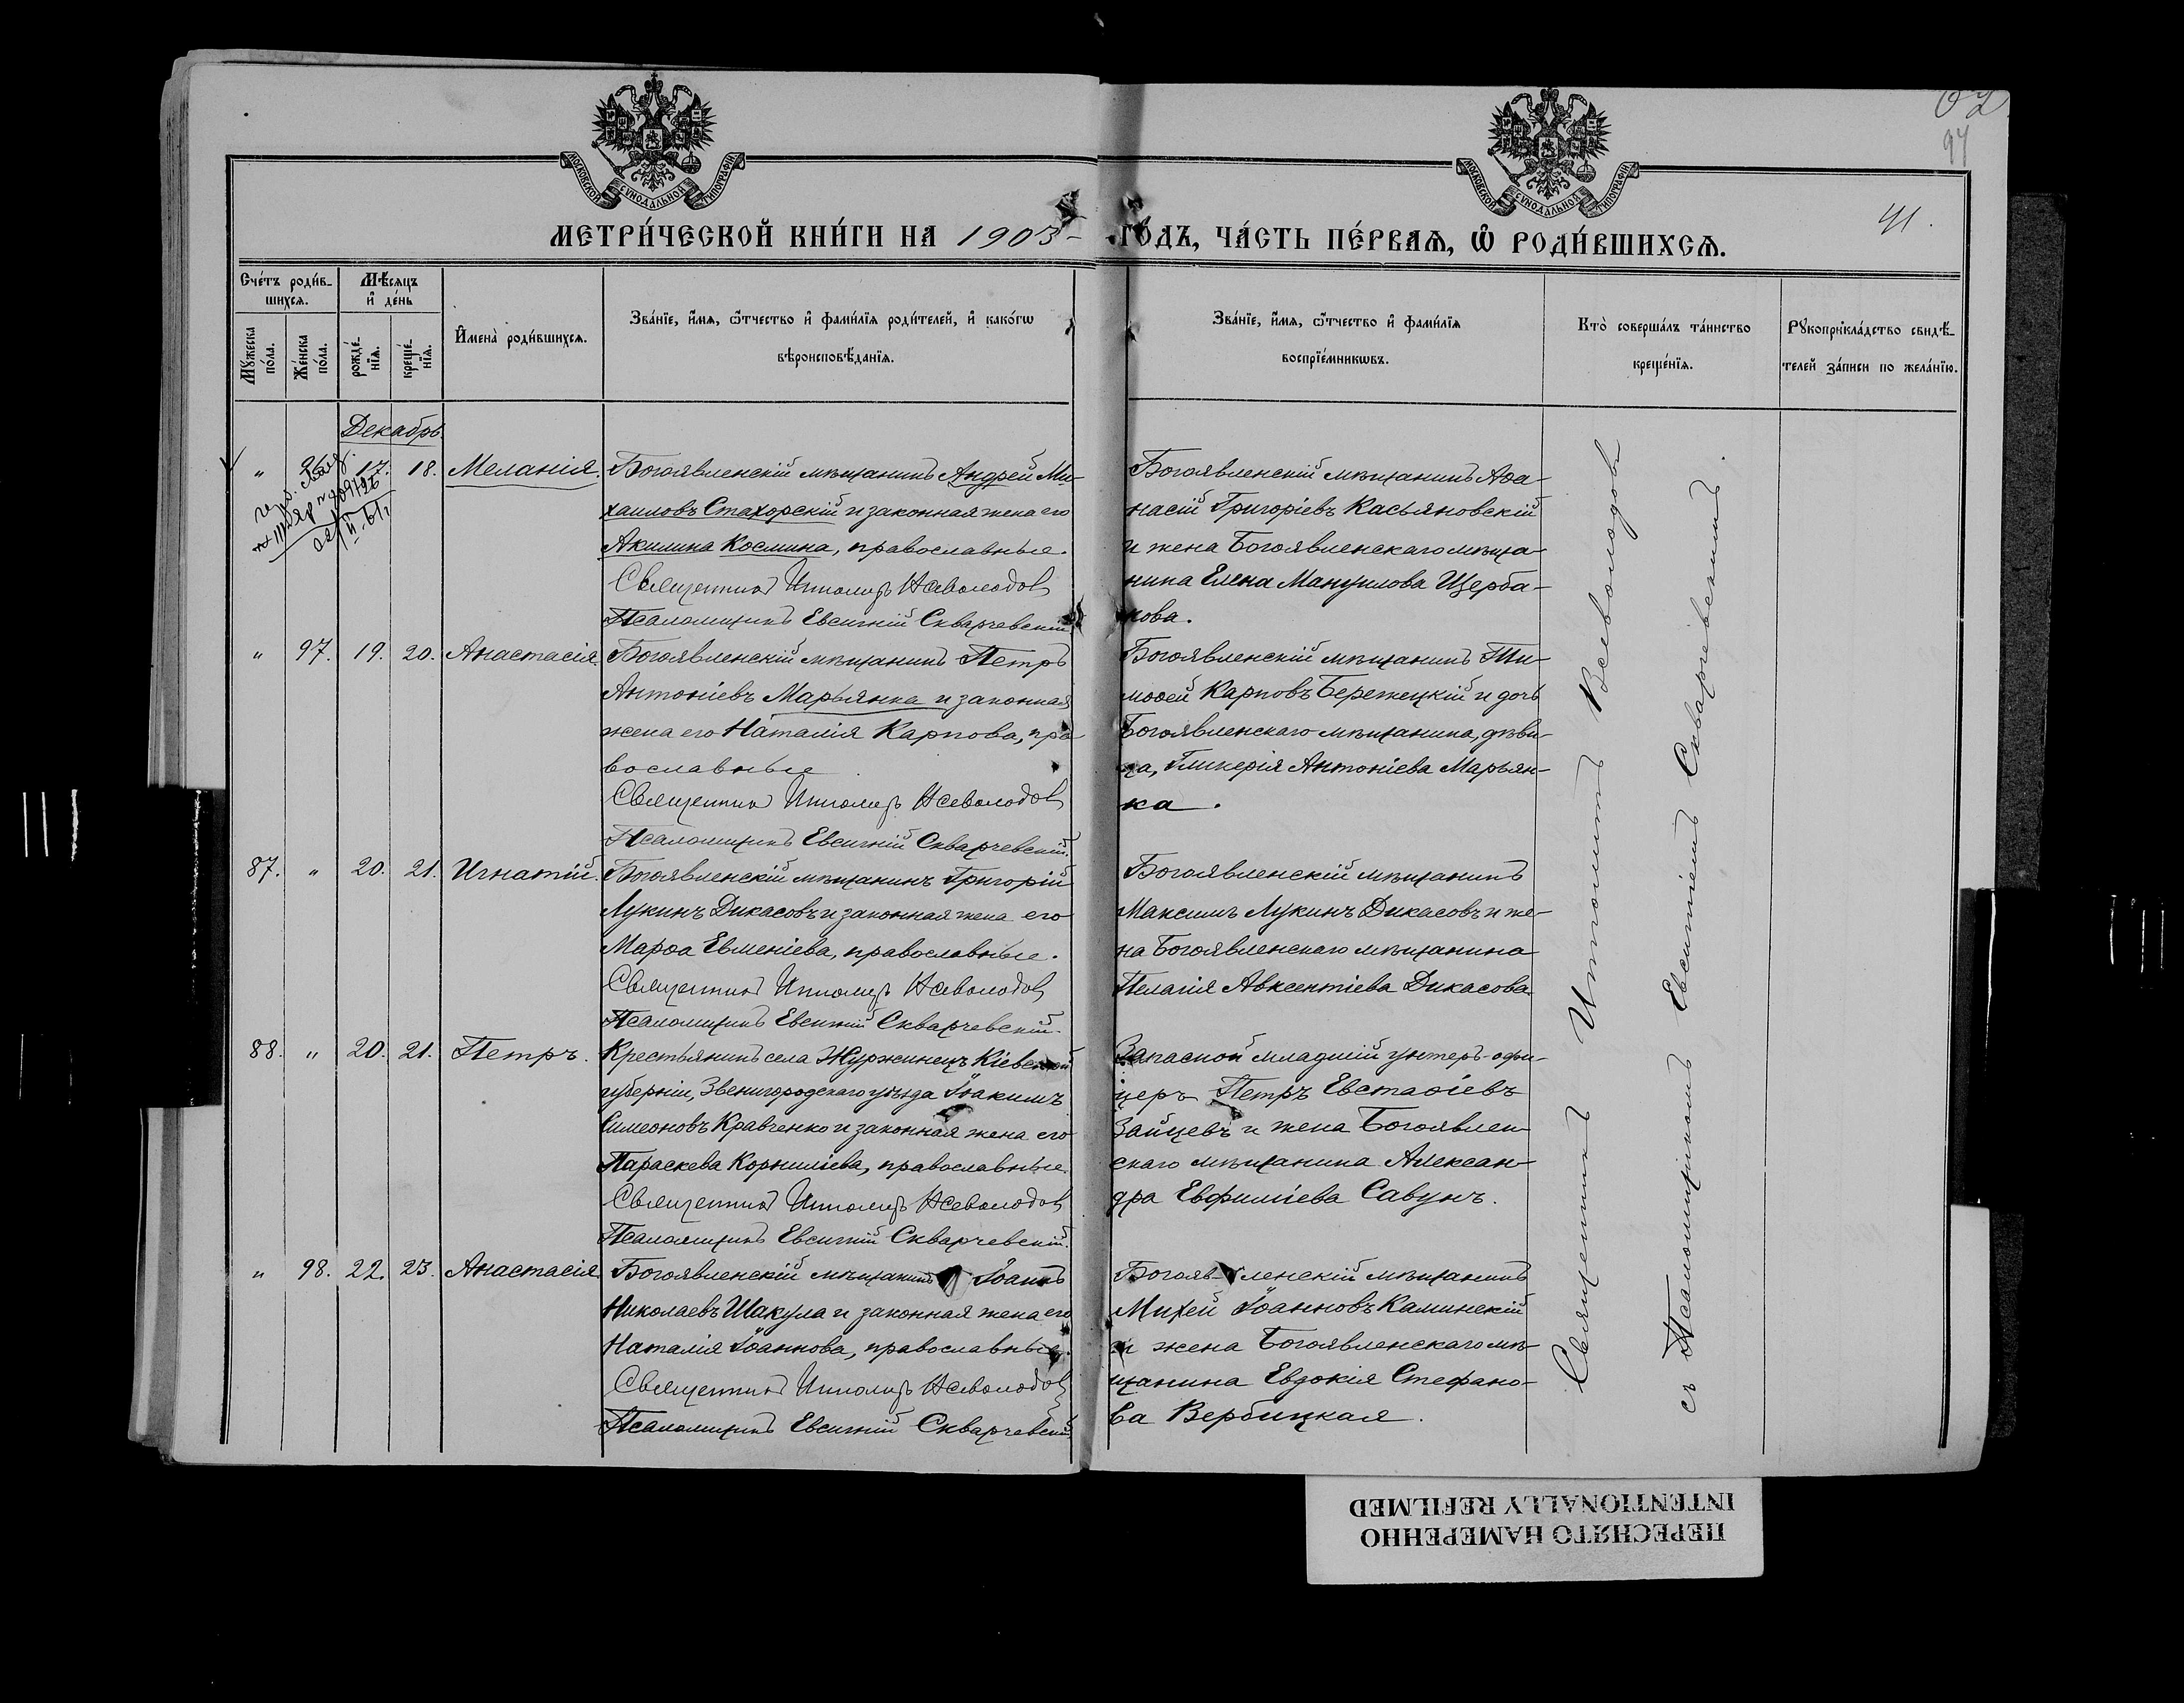 62
94
41.
МОСКОВСКОЙ СУНОДАЛЬНОЙ ТИПОГРАФІИ
МОСКОВСКОЙ СУНОДАЛЬНОЙ ТИПОГРАФІИ
МЕТРИ́ЧЕСКОЙ КНИ́ГИ НА 1903- ГО́ДЪ, ЧА́СТЬ ПЕ́РВАѦ, Ѽ РОДИ́ВШИХСѦ.
Сче́тъ роди́в-
шихсѧ.
Мѣ́сѧцъ
и҆ де́нь
Мꙋ́жеска
по́ла.
Же́нска
по́ла.
рожде́-
нїѧ.
креще́-
нїѧ.
И҆мена̀ роди́вшихсѧ.
Зва́нїе, и҆́мѧ, ѻ҆́тчество и҆ фами́лїѧ роди́телей, и҆ како́гѡ
вѣроисповѣ́данїѧ.
Зва́нїе, и҆́мѧ, ѻ҆́тчество и҆ фами́лїѧ
воспрїе́мникѡвъ.
Кто̀ соверша́лъ та́инство
креще́нїѧ.
Рꙋкоприкла́дство свидѣ́-
телей за́писи по жела́нїю.
Декабрь.
" 96. 17. 18. Меланія. Богоявленскій мѣщанинъ Андрей Ми-
хаиловъ Стахорскій и законная жена его
Акилина Космина, православные.
Священникъ Ипполитъ Всеволодовъ
Псаломщикъ Евсигній Скварчевскій
Богоявленскій мѣщанинъ Аѳа-
насій Григоріевъ Касьяновскій
и жена Богоявленскаго мѣща-
нина Елена Мануилова Щерба-
кова.
" 97. 19. 20. Анастасія. Богоявленскій мѣщанинъ Петръ
Антоніевъ Марьянка и законная
жена его Наталія Карпова, пра-
вославные
Священникъ Ипполитъ Всеволодовъ
Псаломщикъ Евсигній Скварчевскій.
Богоявленскій мѣщанинъ Ти-
моѳей Карповъ Бережецкій и дочь
Богоявленскаго мѣщанина, дѣви-
ца, Гликерія Антоніева Марьян-
ка.
87. " 20. 21. Игнатій. Богоявленскій мѣщанинъ Григорій
Лукинъ Дикасовъ и законная жена его
Марѳа Евменіева, православные.
Священникъ Ипполитъ Всеволодовъ
Псаломщикъ Евсигній Скварчевскій.
Богоявленскій мѣщанинъ
Максимъ Лукинъ Дикасовъ и же-
на Богоявленскаго мѣщанина
Пелагія Авксентіева Дикасова.
88. " 20. 21. Петръ. Крестьянинъ села Журжинецъ Кіевской
губерніи, Звенигородскаго уѣзда Іоакимъ
Симеоновъ Кравченко и законная жена его
Параскева Корниліева, православные.
Священникъ Ипполитъ Всеволодовъ
Псаломщикъ Евсигній Скварчевскій.
Запасной младшій унтеръ-офи-
церъ Петръ Евстаѳіевъ
Зайцевъ и жена Богоявлен-
скаго мѣщанина Алексан-
дра Евфиміева Савунъ.
" 98. 22. 23. Анастасія. Богоявленскій мѣщанинъ Іоаннъ
Николаевъ Шакула и законная жена его
Наталія Іоаннова, православные.
Священникъ Ипполитъ Всеволодовъ
Псаломщикъ Евсигній Скварчевскій.
Богоявленскій мѣщанинъ
Михей Іоанновъ Каминскій
и жена Богоявленскаго мѣ-
щанина Евдокія Стефано-
ва Вербицкая.
Священникъ Ипполитъ Всеволодовъ
съ Псаломщикомъ Евсигніемъ Скварчевскимъ.
ПЕРЕСНЯТО НАМЕРЕННО
INTENTIONALLY REFILMED